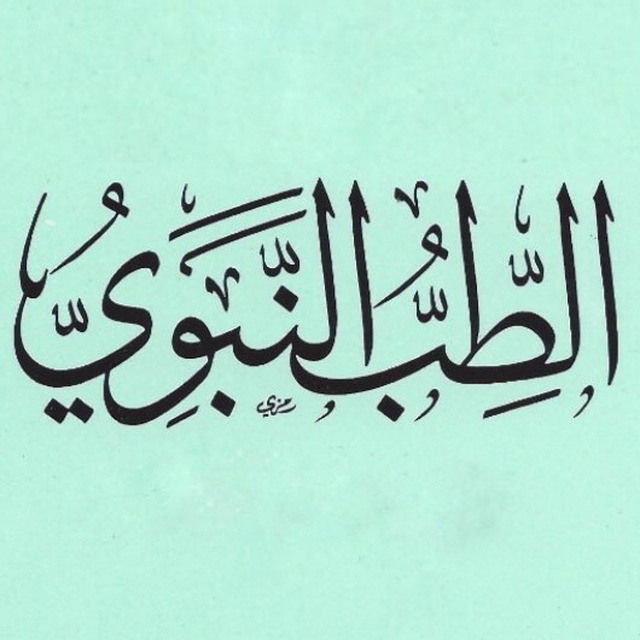 الطِّبُّ النَّبَوِيُّ
رمزي